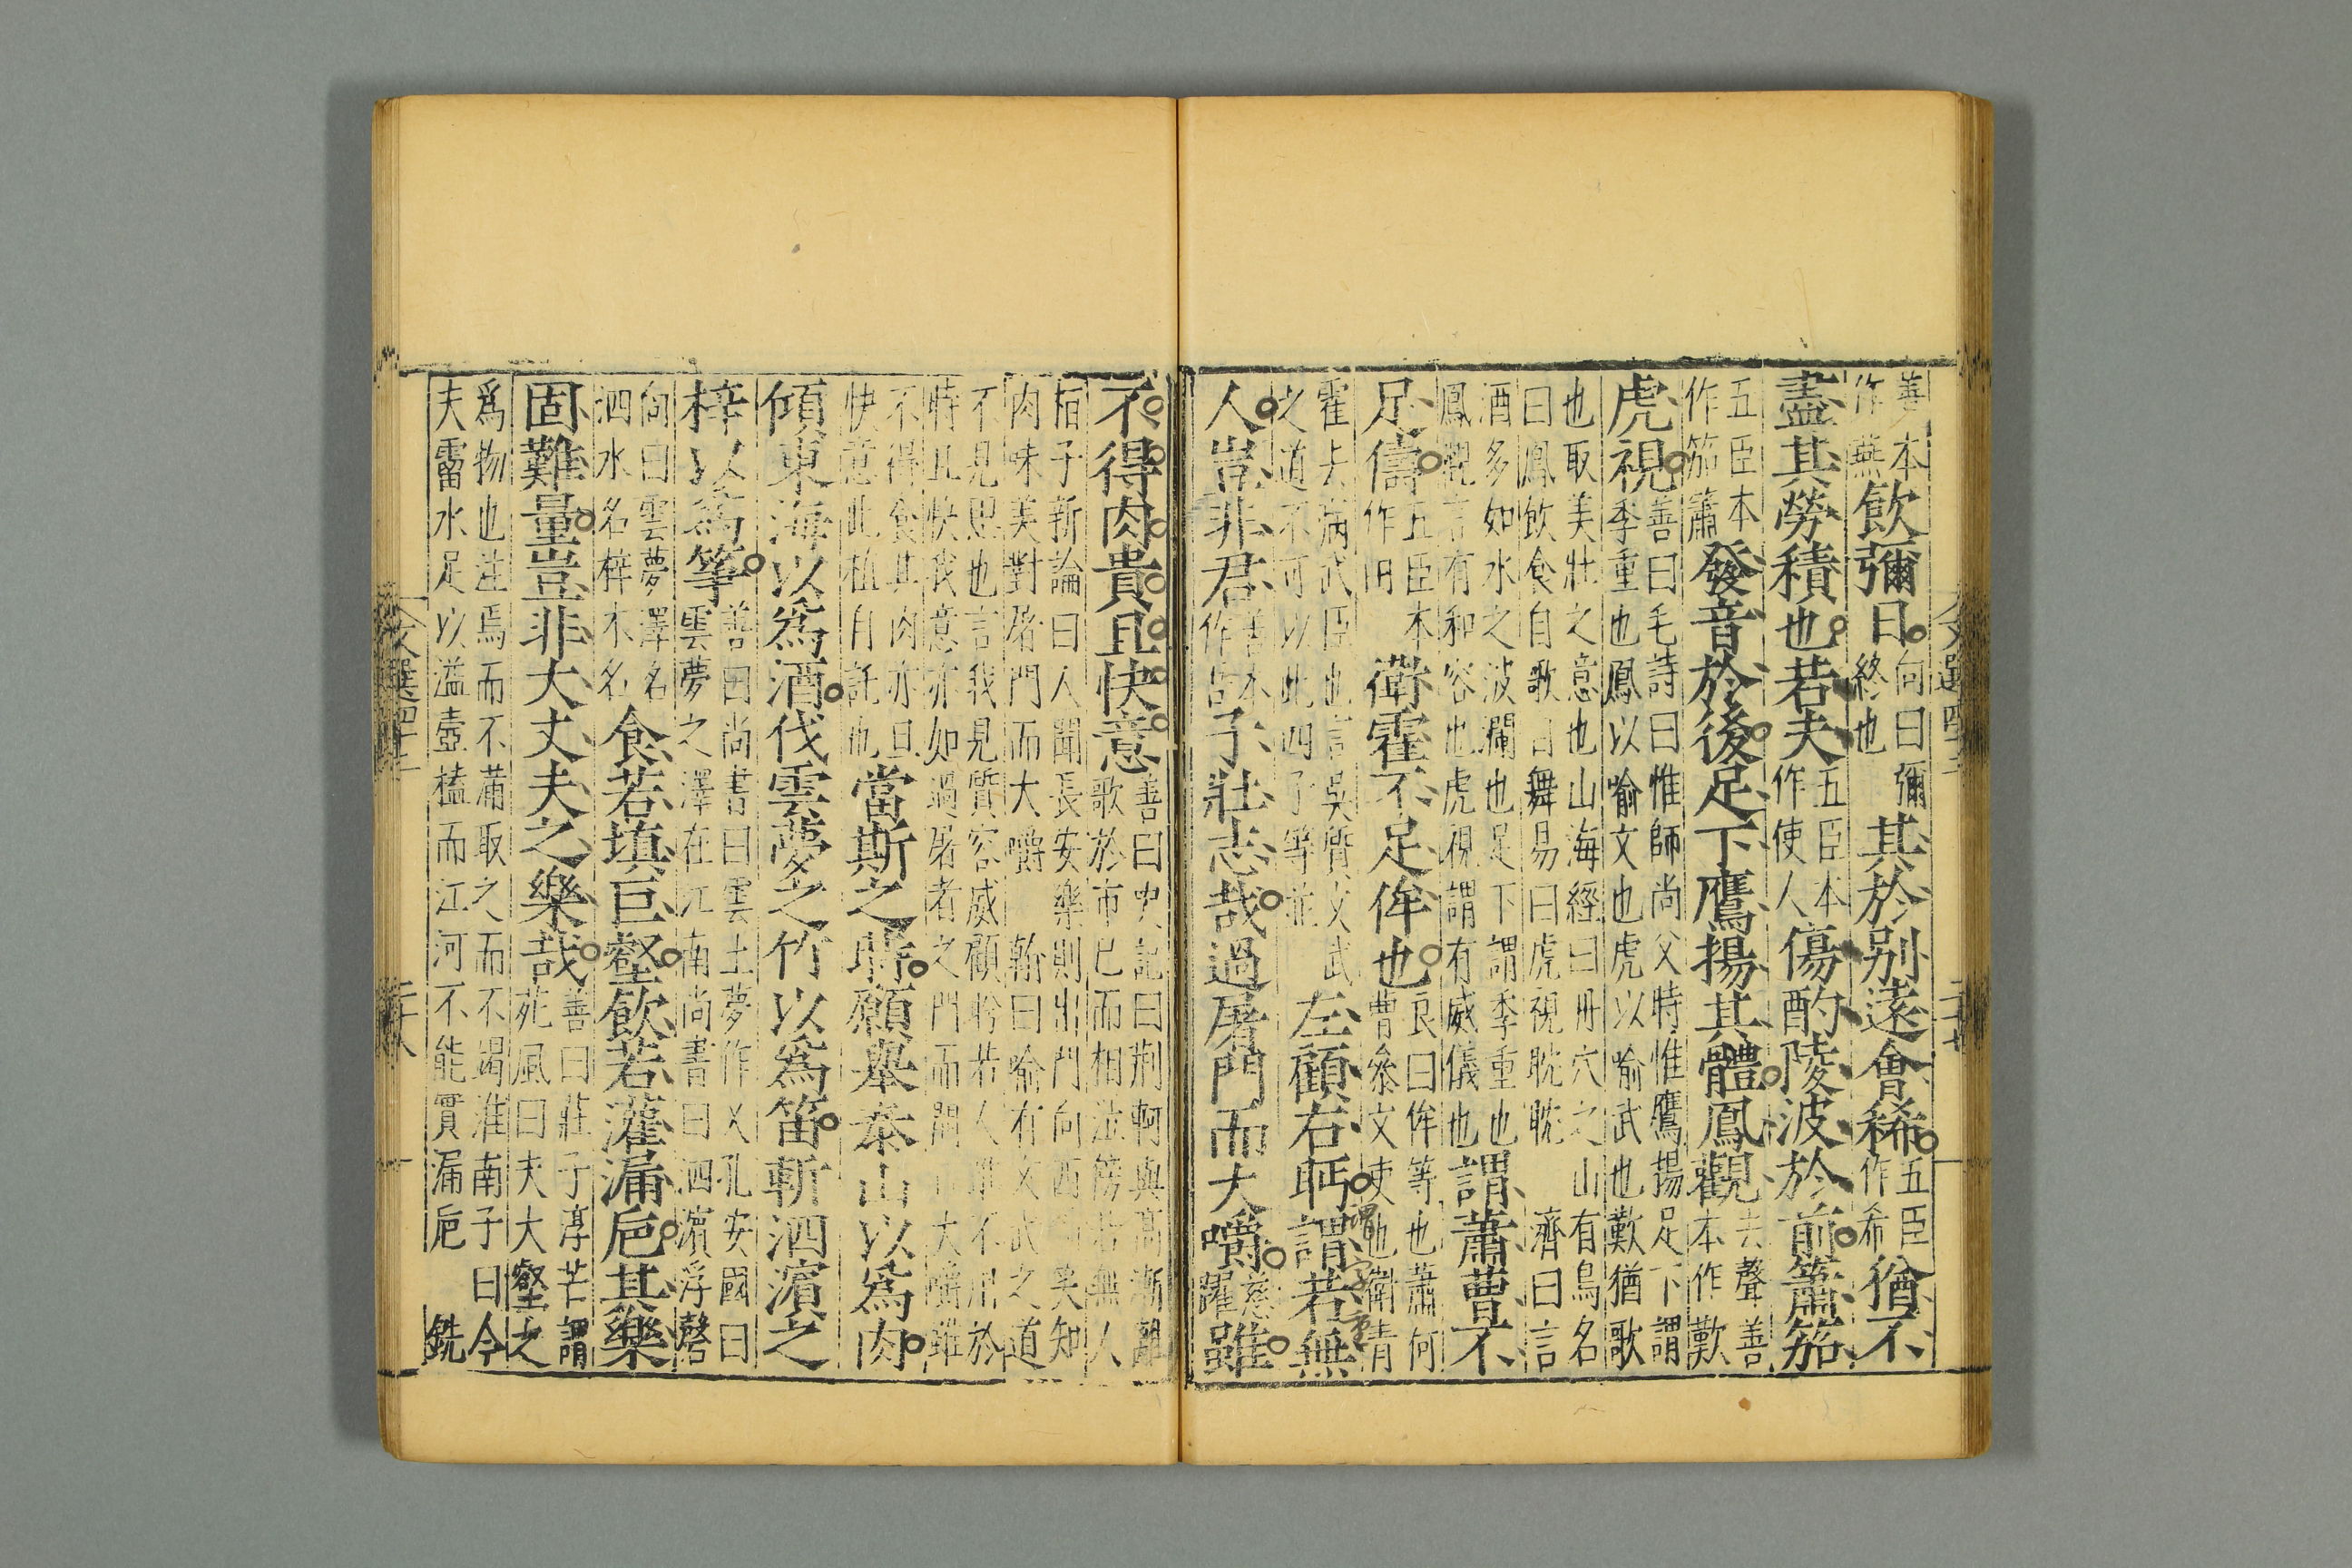 文選四十二
二十七
善本作燕飲彌日向曰彌終也其於别遠會稀五臣作希猶不
盡其勞積也若夫五臣本作使人傷酌陵波於前簫笳
五臣本作笳簫發音於後足下鷹揚其體鳳觀去聲善本作歎
虎視善曰毛詩曰惟師尚父時惟鷹揚足下謂季重也鳳以喻文也虎以喻武也歎猶歌
也取美壯之意也山海經曰丹穴之山有鳥名曰鳳飲食自歌自舞易曰虎視眈眈 濟曰言
酒多如水之波瀾也足下謂季重也鳳觀言有和容也虎視謂有威儀也謂蕭曹不
足儔五臣本作 衛霍不足侔也良曰侔等也蕭何曹參文使也衛青
霍去病武臣也言吳質文武之道不可以此四子等並左顧右眄謂若無
謂字重
人豈非君善本作吾子壯志哉過屠門而大嚼慈躍雖
不得肉貴且快意善曰史記曰荊軻與高漸離歌於市已而相泣傍若無人
桓子新論曰人聞長安樂則出門向西而笑知肉味美對屠門而大嚼 翰曰喻有文武之道
不見思也言我見質容威顧眄若人雖不用於時且快我意亦如過屠者之門而開口大嚼雖
不得食其肉亦且快意此植自託也當斯之時願舉泰山以爲肉
傾東海以爲酒伐雲夢之竹以爲笛斬泗濵之
梓以爲箏善曰尚書曰雲土夢作乂孔安國曰雲夢之澤在江南尚書曰泗濵浮磬
向曰雲夢澤名泗水名梓木名食若填巨壑飲若灌漏巵其樂
固難量豈非大丈夫之樂哉善曰莊子淳芒謂苑風曰夫大壑之
爲物也注焉而不滿取之而不竭淮南子曰今夫霤水足以溢壺榼而江河不能實漏巵 銑
文選四十二
二十八